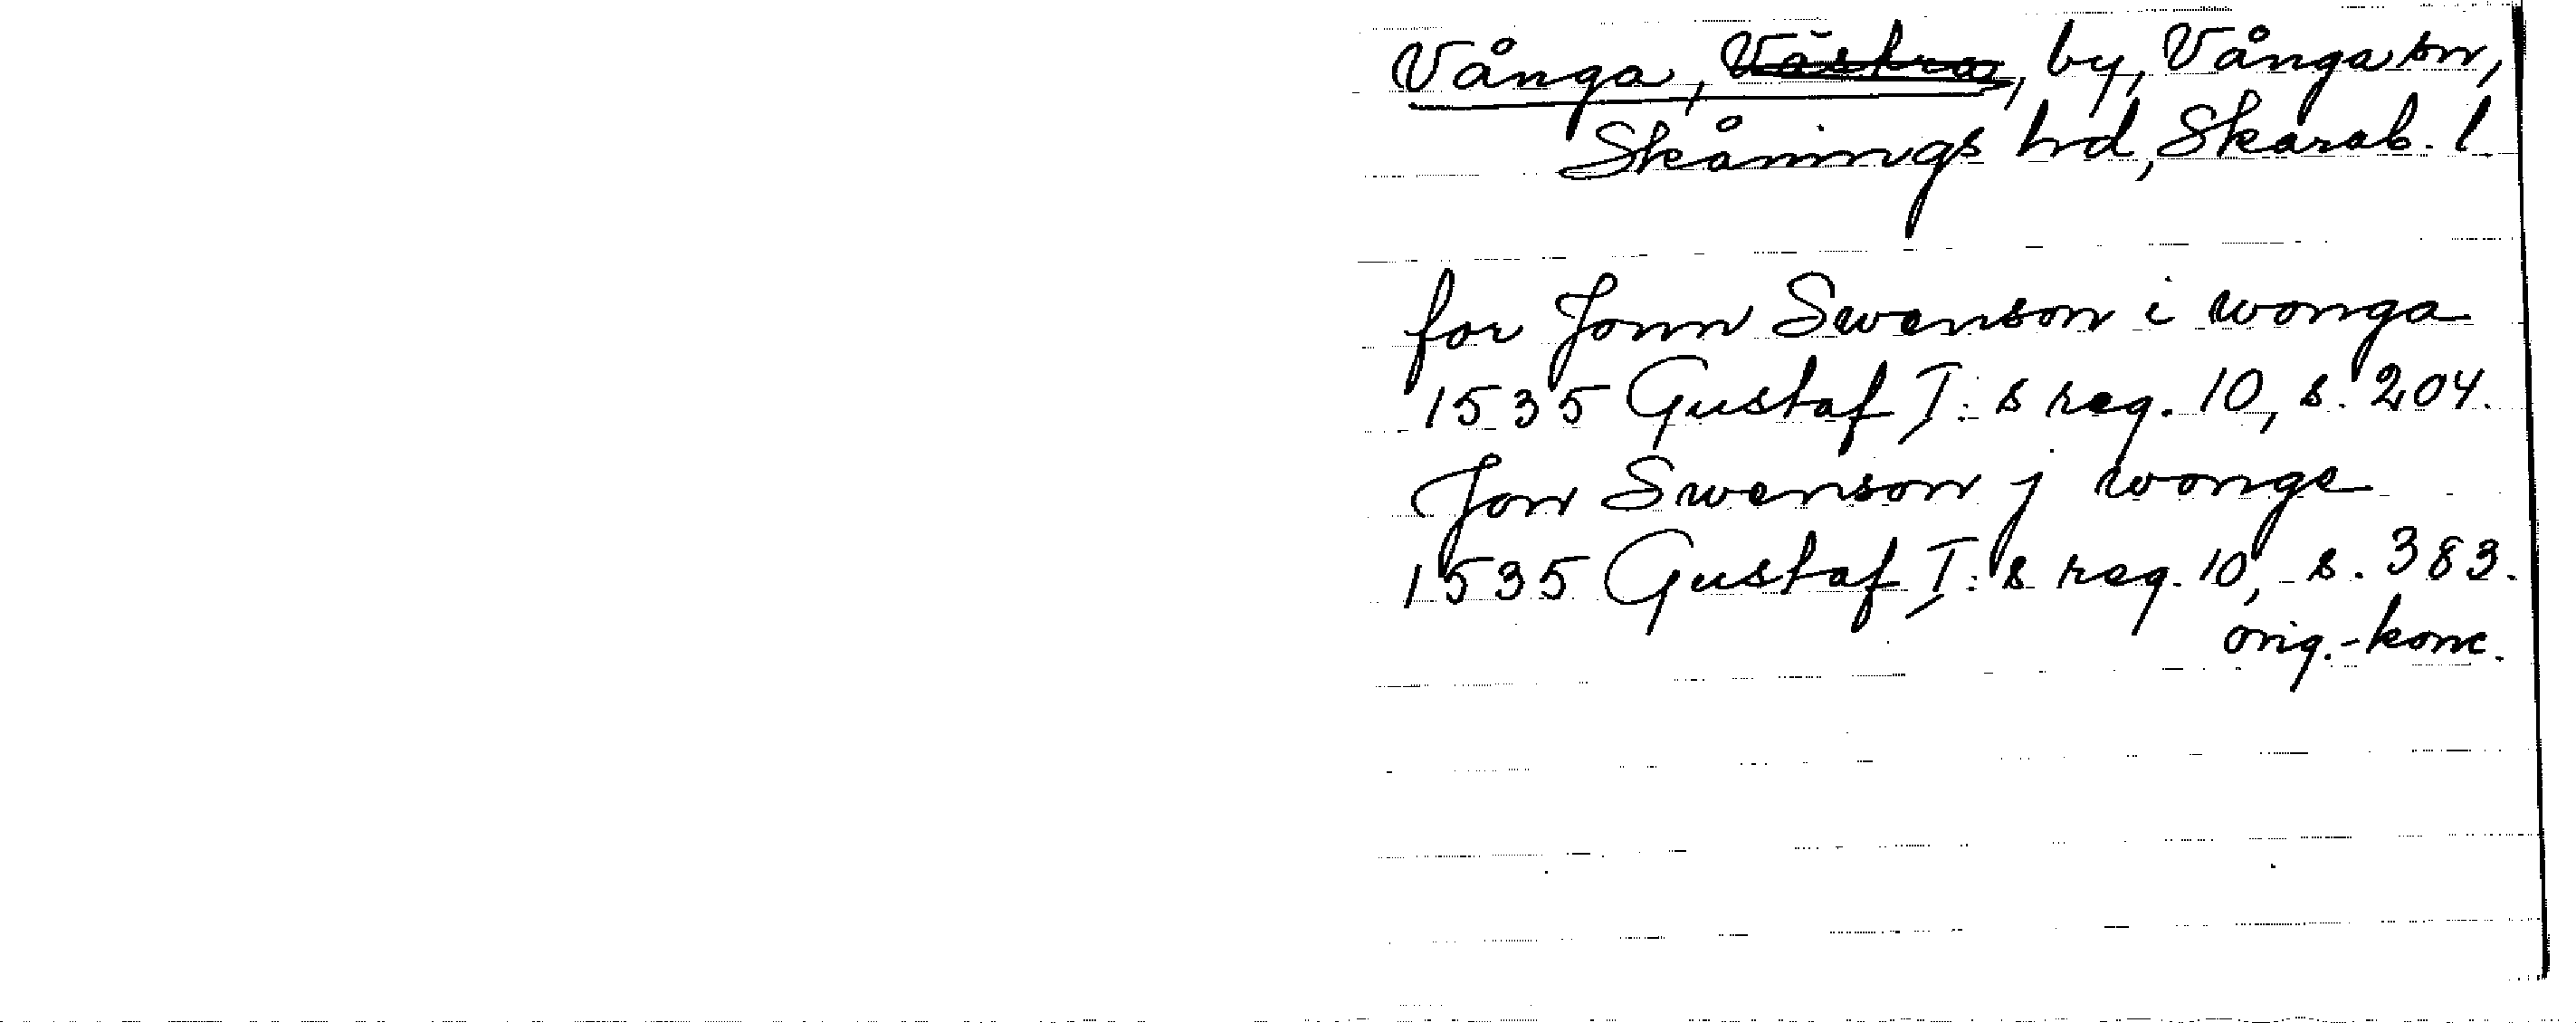 Vånga, Västra, by, Vånga sn,
Skånings hd, Skarab. l
for Jonn Swenson i wonga
1535 Gustaf I:s reg. 10, s. 204.
Jon Swenson j wonge
1535 Gustaf I:s reg. 10, s. 383.
orig.-konc.